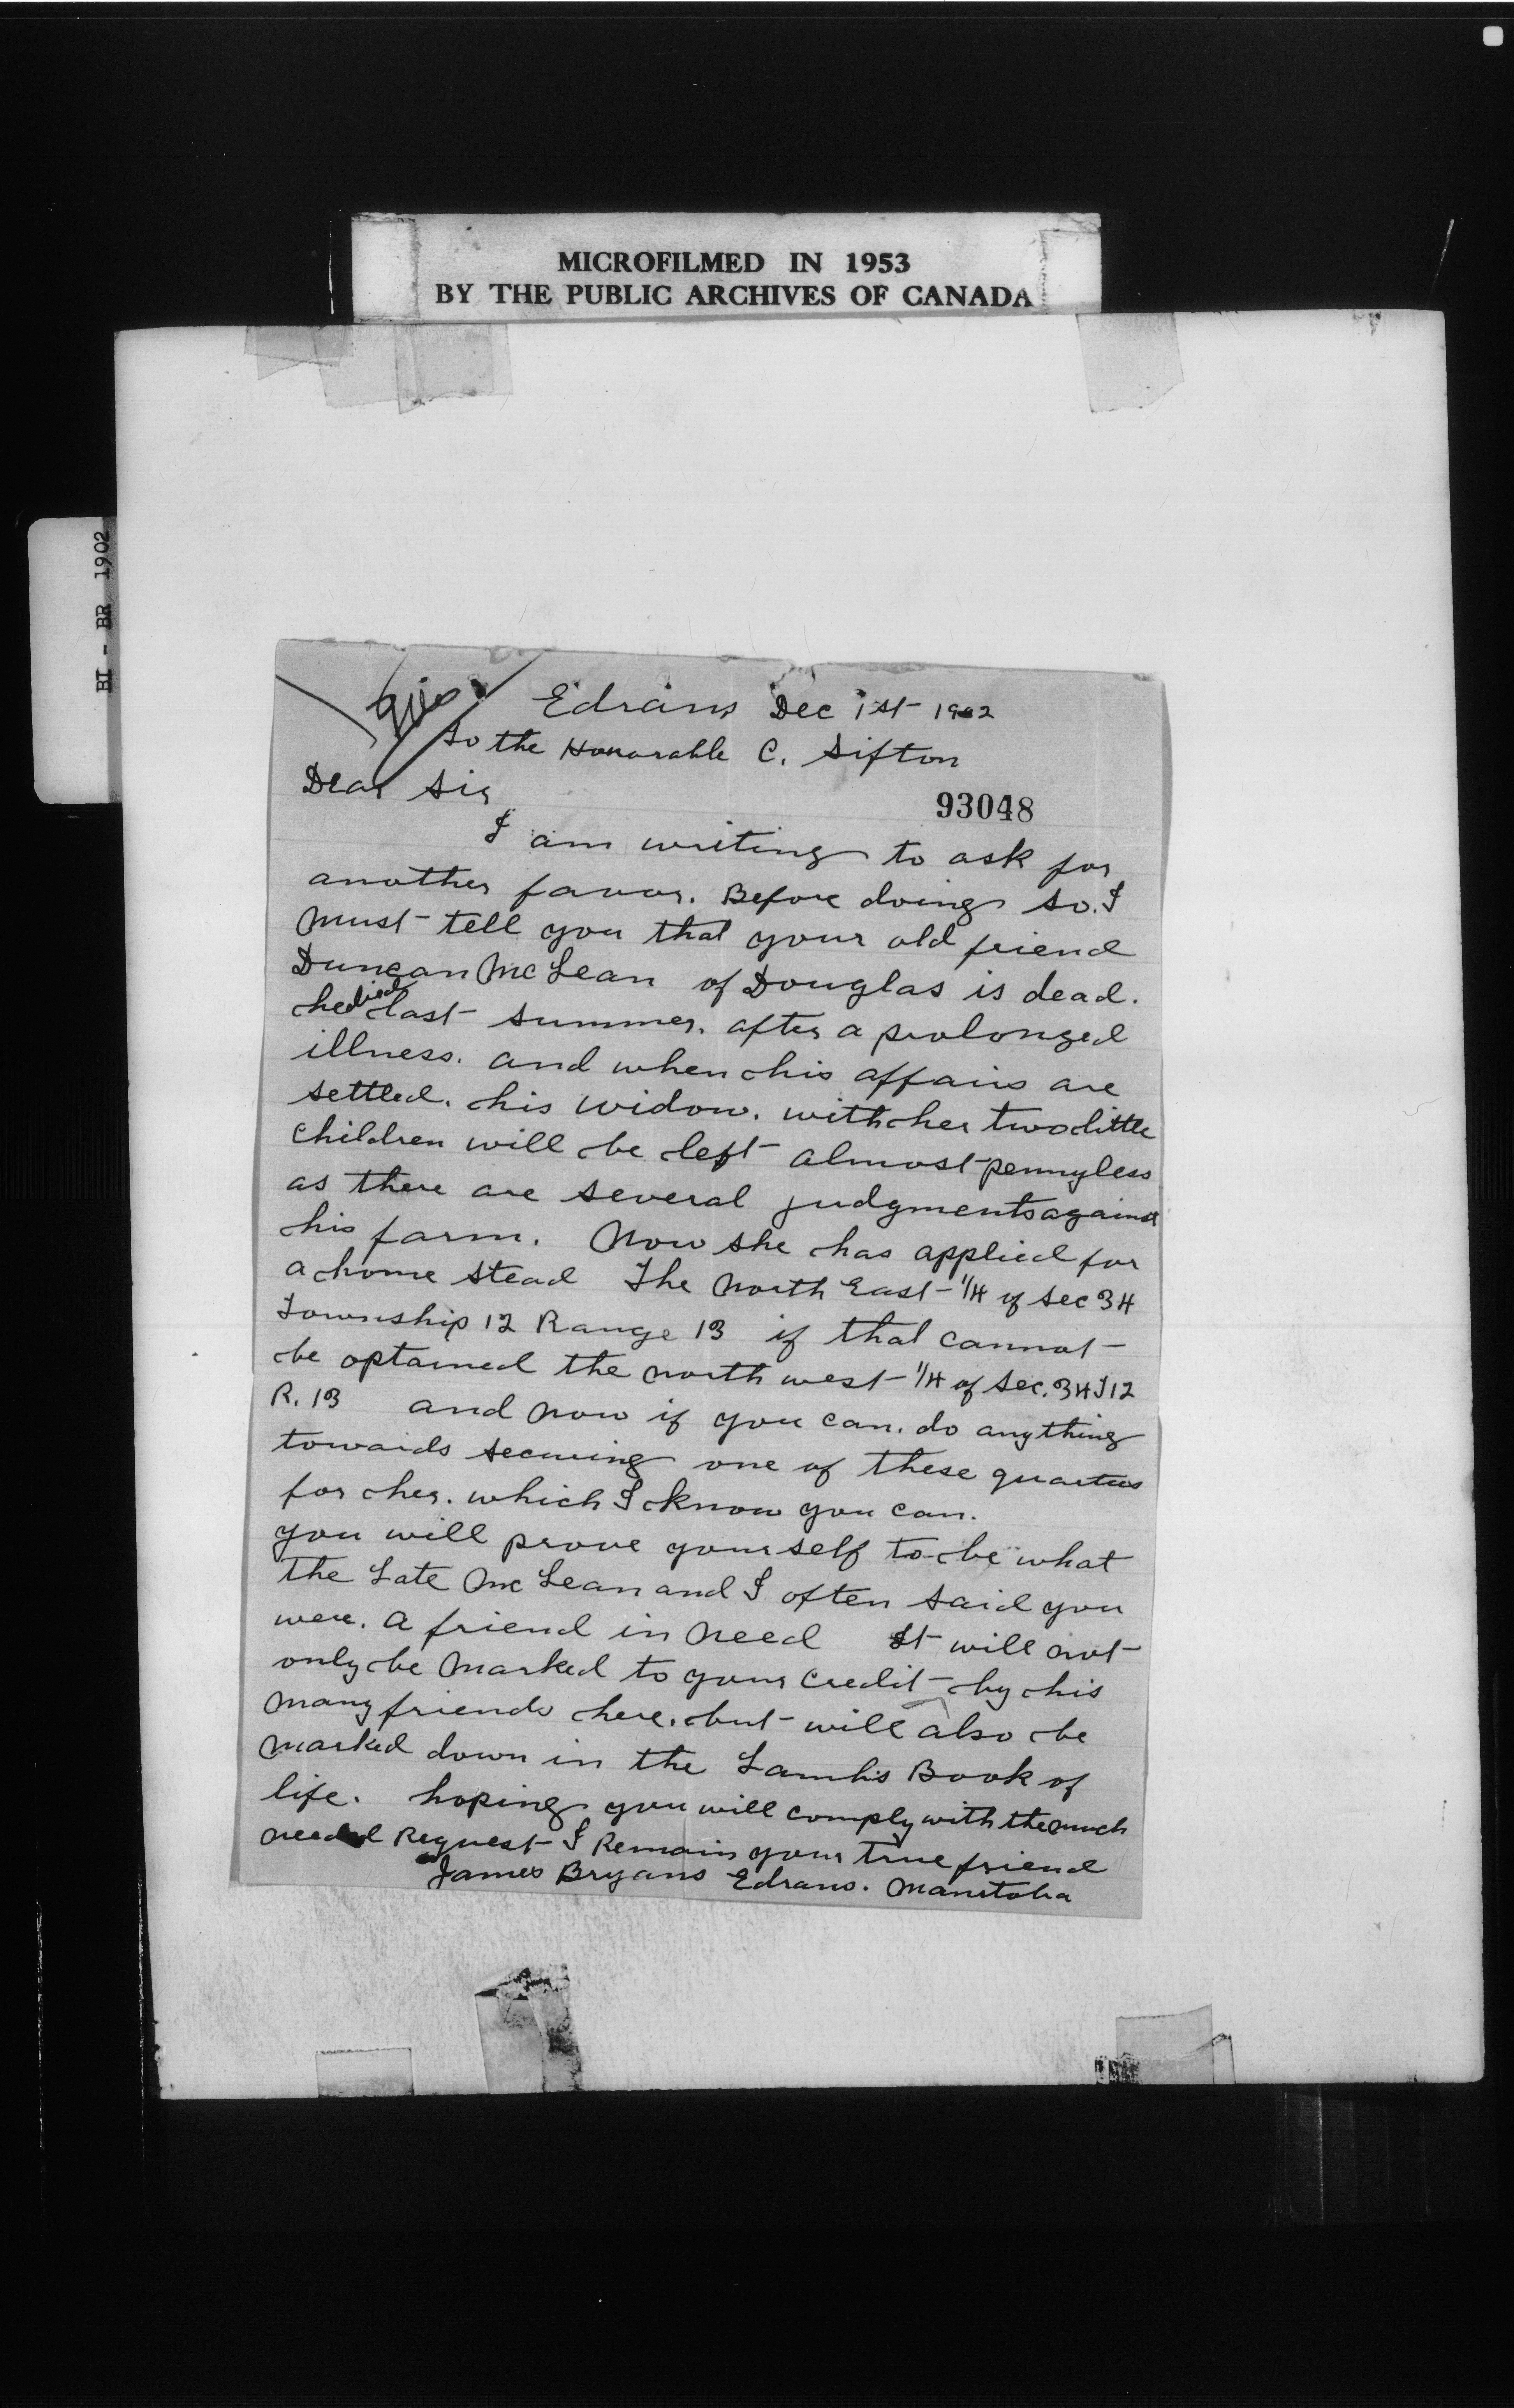 MICROFILMED IN 1953
BY THE PUBLIC ARCHIVES OF CANADA
BI - BR 1902
Edrans Dec 1st 1902
To the Honorable C. Sifton
Dear Sir
93048
I am writing to ask for
another favor. Before doing so. I
must tell you that your old friend
Duncan McLean of Douglas is dead.
he died last summer. after a prolonged
illness. and when his affairs are
settled. his widow. with her two little
children will be left almost pennyless
as there are several judgments against
his farm. Now she has applied for
a home stead The North East 1/4 of Sec 34
Township 12 Range 13 if that cannot
be optained the north west 1/4 of Sec. 34 T 12
R. 13 and now if you can. do anything
towards securing one of these quarters
for her. which I know you can.
you will prove yourself to be what
the Late McLean and I often said you
were. a friend in need It will not
only be marked to your credit by his
many friends here. but will also be
marked down in the Lamb's Book of
life. hoping you will comply with the much
needed Request I Remain your true friend
James Bryans Edrans. Manitoba